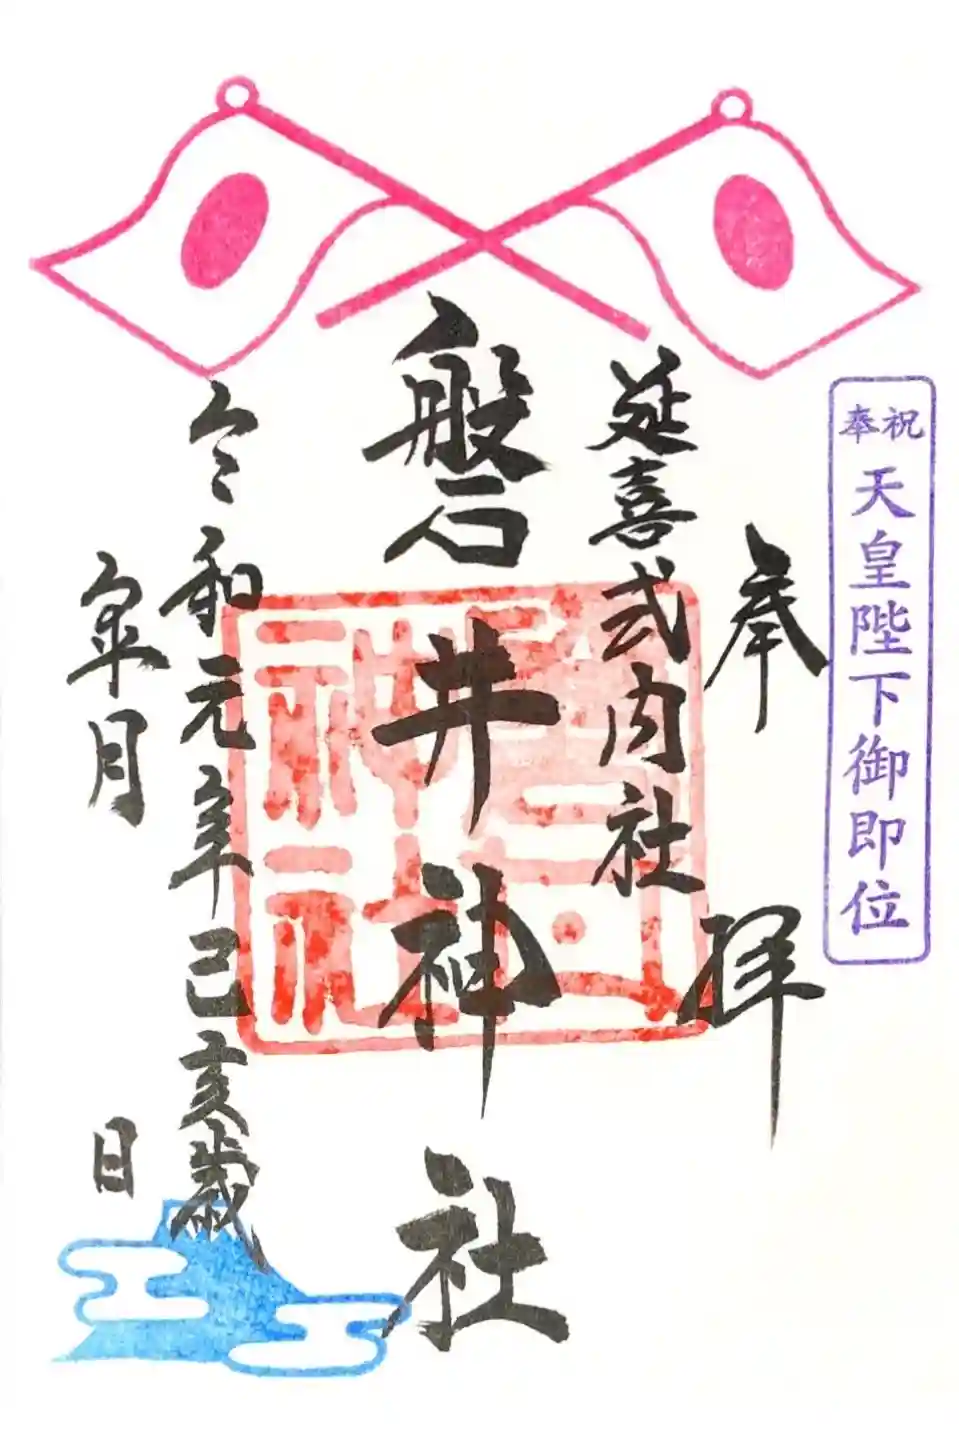 奉祝
天皇陛下御即位
奉拝
延喜式内社
磐井神社
令和元年己亥歳
皐月 日
磐井神社